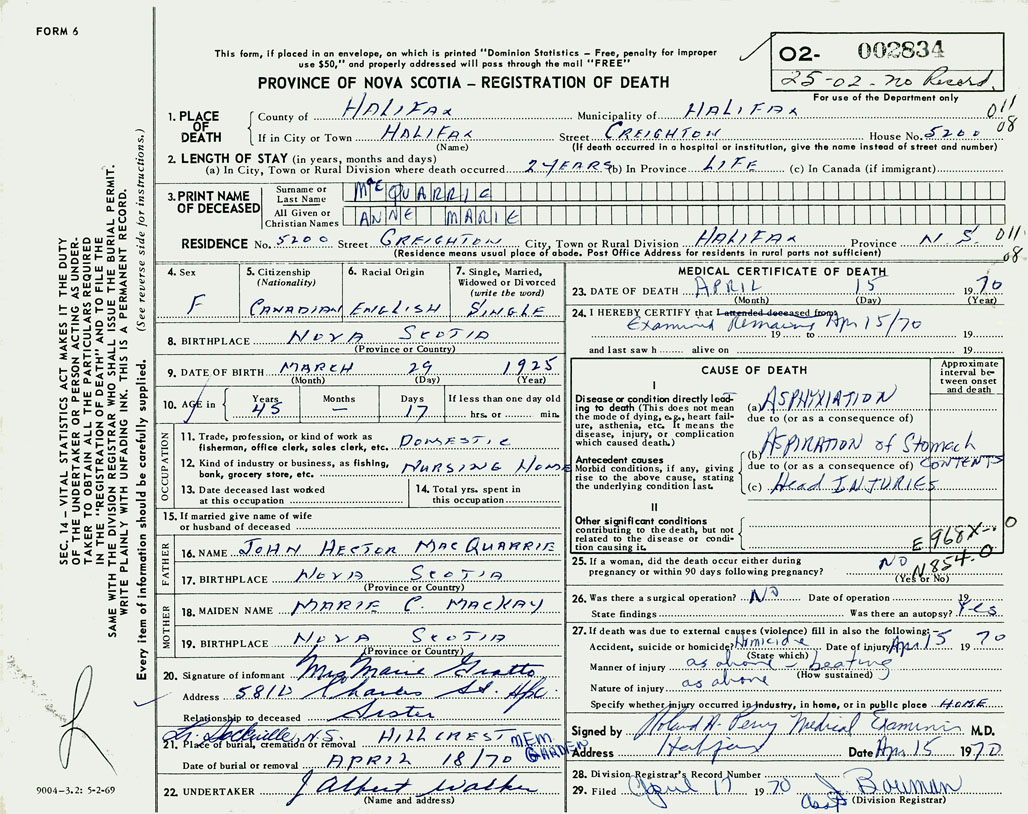 FORM 6
This form, if placed in an envelope, on which is printed "Dominion Statistics – Free, penalty for improper
use $50," and properly addressed will pass through the mail "FREE"
PROVINCE OF NOVA SCOTIA – REGISTRATION OF DEATH
O2- 002834
25-02- no Record.
For use of the Department only
011
08
1. PLACE OF DEATH
County of HALIFAX Municipality of HALIFAX
If in City or Town HALIFAX Street CREIGHTON House No. 5200
(Name) (If death occurred in a hospital or institution, give the name instead of street and number)
2. LENGTH OF STAY (in years, months and days)
(a) In City, Town or Rural Division where death occurred 2 YEARS (b) In Province LIFE (c) In Canada (if immigrant)
3. PRINT NAME OF DECEASED
Surname or Last Name MacQUARRIE
All Given or Christian Names ANNE MARIE
RESIDENCE No. 5200 Street CREIGHTON City, Town or Rural Division HALIFAX Province N S
011
08
(Residence means usual place of abode. Post Office Address for residents in rural parts not sufficient)
4. Sex
F
5. Citizenship
(Nationality)
CANADIAN
6. Racial Origin
ENGLISH
7. Single, Married,
Widowed or Divorced
(write the word)
SINGLE
8. BIRTHPLACE NOVA SCOTIA
(Province or Country)
9. DATE OF BIRTH MARCH 29 1925
(Month) (Day) (Year)
10. AGE in Years Months Days If less than one day old
45 – 17 hrs. or min.
OCCUPATION
11. Trade, profession, or kind of work as
fisherman, office clerk, sales clerk, etc. DOMESTIC
12. Kind of industry or business, as fishing,
bank, grocery store, etc. NURSING HOME
13. Date deceased last worked
at this occupation
14. Total yrs. spent in
this occupation
15. If married give name of wife
or husband of deceased
FATHER
16. NAME JOHN HECTOR MACQUARRIE
17. BIRTHPLACE NOVA SCOTIA
(Province or Country)
MOTHER
18. MAIDEN NAME MARIE C. MACKAY
19. BIRTHPLACE NOVA SCOTIA
(Province or Country)
20. Signature of informant Mrs Marie Gratto
Address Charles St. Hfx.
Relationship to deceased Sister
Lr. Sackville, N.S. HILLCREST MEM. GARDEN
21. Place of burial, cremation or removal
Date of burial or removal APRIL 18/70
22. UNDERTAKER J Albert Walker
(Name and address)
MEDICAL CERTIFICATE OF DEATH
23. DATE OF DEATH APRIL 15 1970
(Month) (Day) (Year)
24. I HEREBY CERTIFY that I attended deceased from
Examined Remains Apr 15/70
19 to 19
and last saw h alive on 19
CAUSE OF DEATH
Approximate
interval be-
tween onset
and death
I
Disease or condition directly lead-
ing to death (This does not mean
the mode of dying, e.g., heart fail-
ure, asthenia, etc. It means the
disease, injury, or complication
which caused death.)
(a) ASPHYXIATION
due to (or as a consequence of)
Antecedent causes
Morbid conditions, if any, giving
rise to the above cause, stating
the underlying condition last.
(b) ASPIRATION of Stomach CONTENTS
due to (or as a consequence of)
(c) Head INJURIES
II
Other significant conditions
contributing to the death, but not
related to the disease or condi-
tion causing it.
E 968X-0
N854.0
25. If a woman, did the death occur either during
pregnancy or within 90 days following pregnancy? NO
(Yes or No)
26. Was there a surgical operation? NO Date of operation 19
State findings Was there an autopsy? Yes
27. If death was due to external causes (violence) fill in also the following:
Accident, suicide or homicide? Homicide Date of injury Apr. 15 1970
(State which)
Manner of injury as above – beating
(How sustained)
Nature of injury as above
Specify whether injury occurred in industry, in home, or in public place HOME
Signed by Roland H. Perry Medical Examiner M.D.
Address Halifax Date Apr. 15 1970
28. Division Registrar's Record Number
29. Filed April 17 1970 J Bowman
(Division Registrar)
SEC. 14 – VITAL STATISTICS ACT MAKES IT THE DUTY
OF THE UNDERTAKER OR PERSON ACTING AS UNDER-
TAKER TO OBTAIN ALL THE PARTICULARS REQUIRED
IN THE "REGISTRATION OF DEATH" AND TO FILE THE
SAME WITH THE DIVISION REGISTRAR WHO SHALL ISSUE THE BURIAL PERMIT.
WRITE PLAINLY WITH UNFADING INK. THIS IS A PERMANENT RECORD.
Every item of information should be carefully supplied. (See reverse side for instructions.)
9004-3.2: 5-2-69